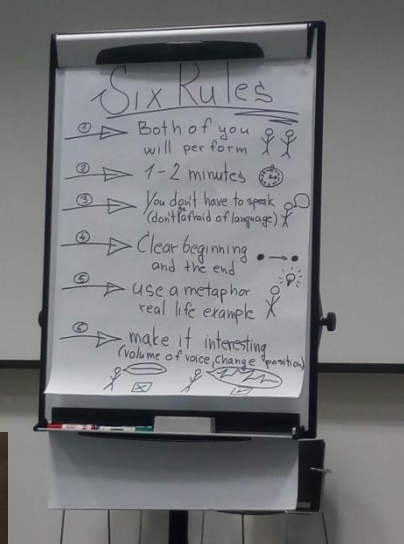 Six Rules
① Both of you
will perform
② 1-2 minutes
③ You don't have to speak
(don't be afraid of language)
④ Clear beginning
and the end
⑤ use a metaphor
real life example
⑥ make it interesting
(volume of voice, change position)